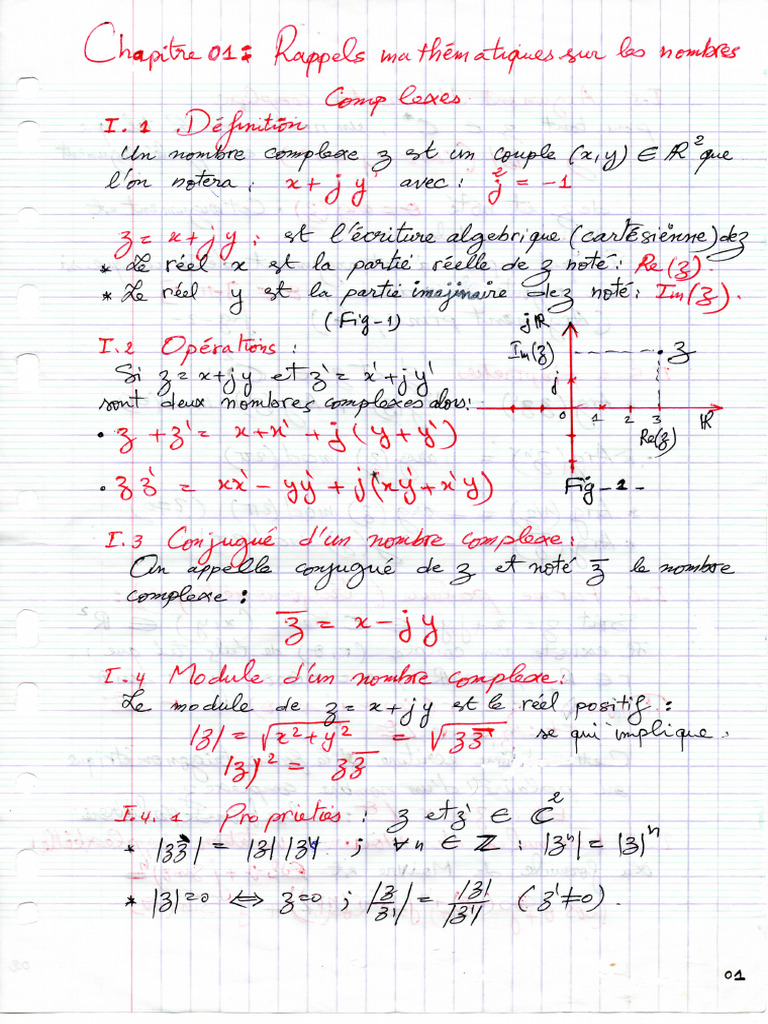 Chapitre 01 : Rappels mathématiques sur les nombres
Complexes
I.1 Définition
Un nombre complexe z est un couple (x,y) ∈ ℝ² que
l'on notera : x + j y avec : j² = -1
z = x + j y : est l'écriture algebrique (cartésiènne) de z
* Le réel x est la partie réelle de z noté : Re(z).
* Le réel y est la partie imajinaire de z noté : Im(z).
(Fig-1)
I.2 Opérations :
Si z = x+jy et z' = x'+jy'
sont deux nombres complexes alors :
• z + z' = x+x' + j (y + y')
• z z' = xx' - yy' + j (xy' + x'y)
jℝ
Im(z)
z
j
0 1 2 3 ℝ
Re(z)
Fig - 1 -
I.3 Conjugué d'un nombre complexe :
On appelle conjugué de z et noté z̄ le nombre
complexe :
z̄ = x - j y
I.4 Module d'un nombre complexe :
Le module de z = x + j y est le réel positif :
|z| = √(x² + y²) = √(z z̄) se qui implique :
|z|² = z z̄
I.4.1 Proprietés : z et z' ∈ ℂ²
* |z z'| = |z| |z'| ; ∀n ∈ ℤ : |zⁿ| = |z|ⁿ
* |z|=0 ⇔ z=0 ; |z/z'| = |z|/|z'| (z' ≠ 0).
01